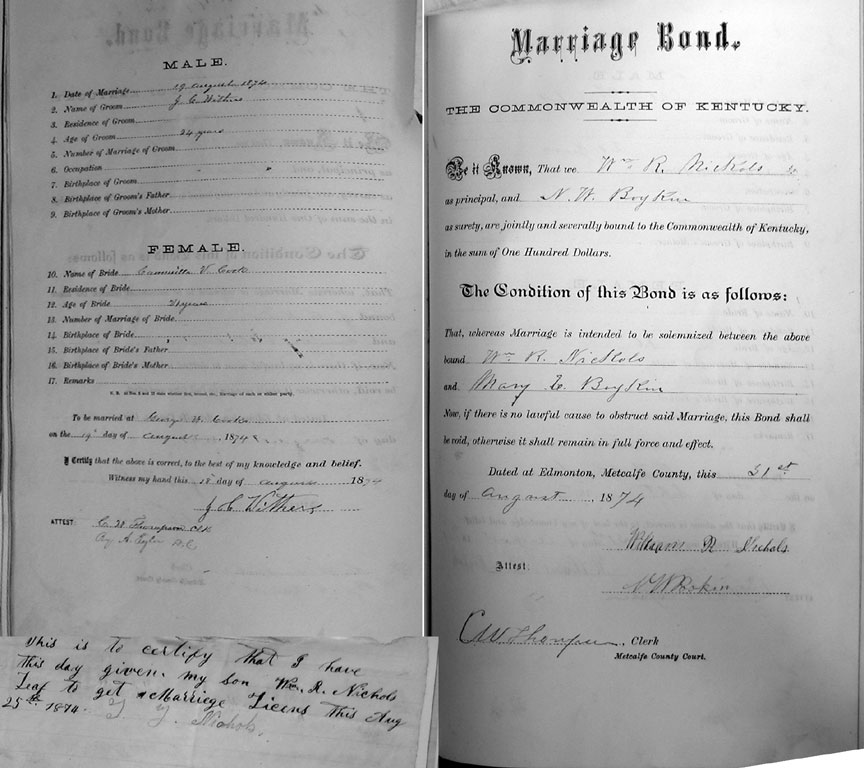 MALE.
1. Date of Marriage 19 August 1874
2. Name of Groom J. C. Withers
3. Residence of Groom
4. Age of Groom 24 years
5. Number of Marriage of Groom
6. Occupation "
7. Birthplace of Groom
8. Birthplace of Groom's Father
9. Birthplace of Groom's Mother
FEMALE.
10. Name of Bride V. Cook
11. Residence of Bride
12. Age of Bride 21 years
13. Number of Marriage of Bride
14. Birthplace of Bride
15. Birthplace of Bride's Father
16. Birthplace of Bride's Mother
17. Remarks
To be married at George W. Cooks
on the 19" day of August 1874
I Certify that the above is correct, to the best of my knowledge and belief.
Witness my hand this 18 day of August 1874
J. C. Withers
ATTEST C. W. Thompson Clk
By A. Taylor D.C.
This is to certify that I have
this day given my son Wm. R. Nichols
Leaf to get a Marriege Licens This Aug
25th 1874. Nichols.
Marriage Bond.
THE COMMONWEALTH OF KENTUCKY.
Be it Known, That we Wm R. Nichols
as principal, and N. W. Boykin
as surety, are jointly and severally bound to the Commonwealth of Kentucky,
in the sum of One Hundred Dollars.
The Condition of this Bond is as follows:
That, whereas Marriage is intended to be solemnized between the above
bound Wm R. Nichols
and Mary E. Boykin
Now, if there is no lawful cause to obstruct said Marriage, this Bond shall
be void, otherwise it shall remain in full force and effect.
Dated at Edmonton, Metcalfe County, this 31st
day of August 1874
William R Nichols
Attest:
N W Boykin
C W Thompson, Clerk
Metcalfe County Court.